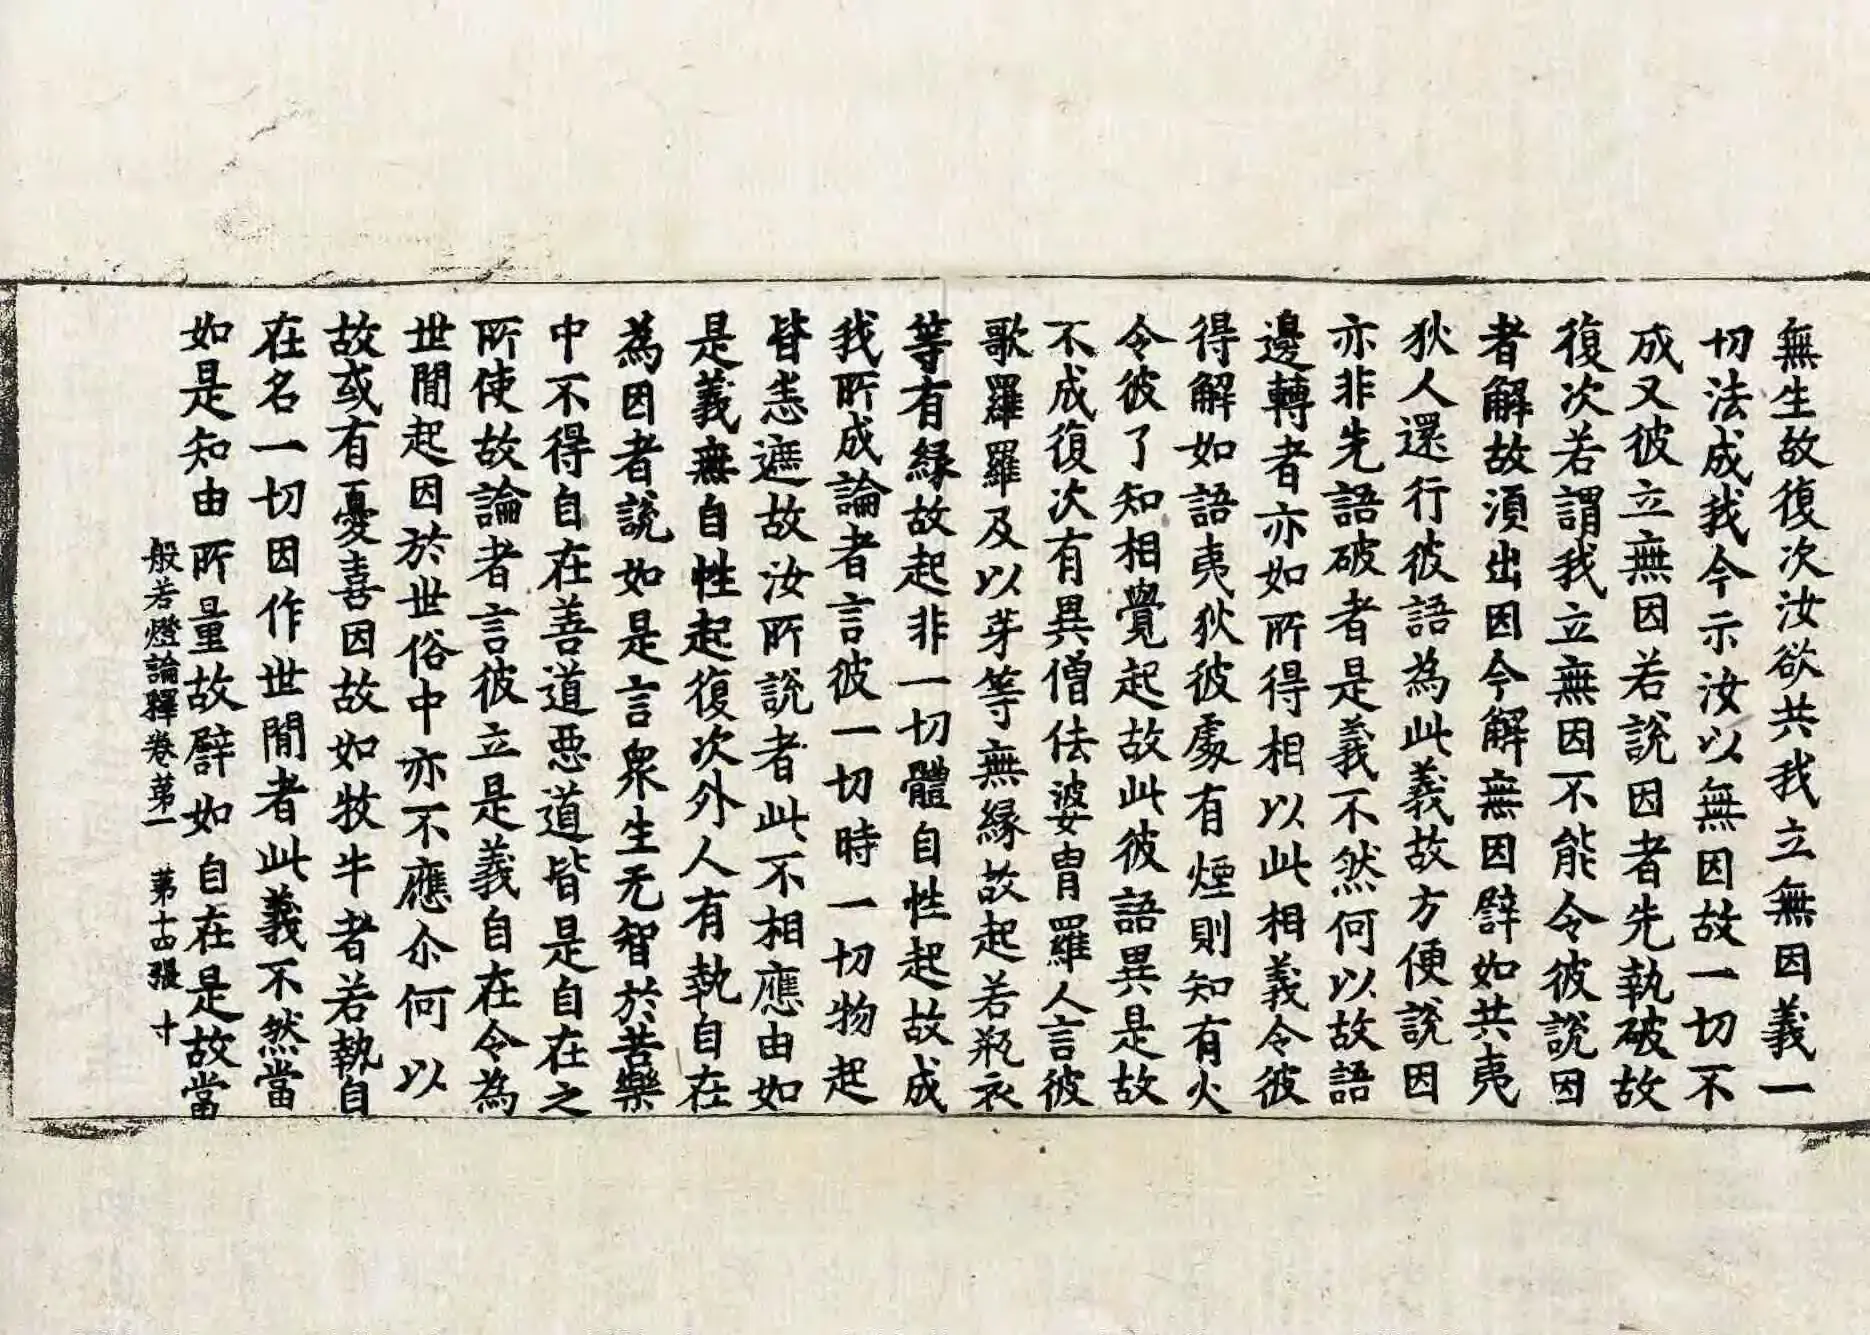 無生故復次汝欲共我立無因義一
切法成我今示汝以無因故一切不
成又彼立無因若說因者先執破故
復次若謂我立無因不能令彼說因
者解故湏出因今解無因譬如共夷
狄人還行彼語為此義故方便說因
亦非先語破者是義不然何以故語
邊轉者亦如所得相以此相義令彼
得解如語夷狄彼處有煙則知有火
令彼了知相覺起故此彼語異是故
不成復次有異僧佉婆胄羅人言彼
歌羅羅及以芽等無縁故起若瓶衣
等有縁故起非一切體自性起故成
我所成論者言彼一切時一切物起
皆恚遮故汝所說者此不相應由如
是義無自性起復次外人有執自在
為因者說如是言衆生无智於苦樂
中不得自在善道惡道皆是自在之
所使故論者言彼立是義自在令為
世間起因於世俗中亦不應尒何以
故或有憂喜因故如牧牛者若執自
在名一切因作世間者此義不然當
如是知由所量故譬如自在是故當
般若燈論釋卷第一 第十四張 寸